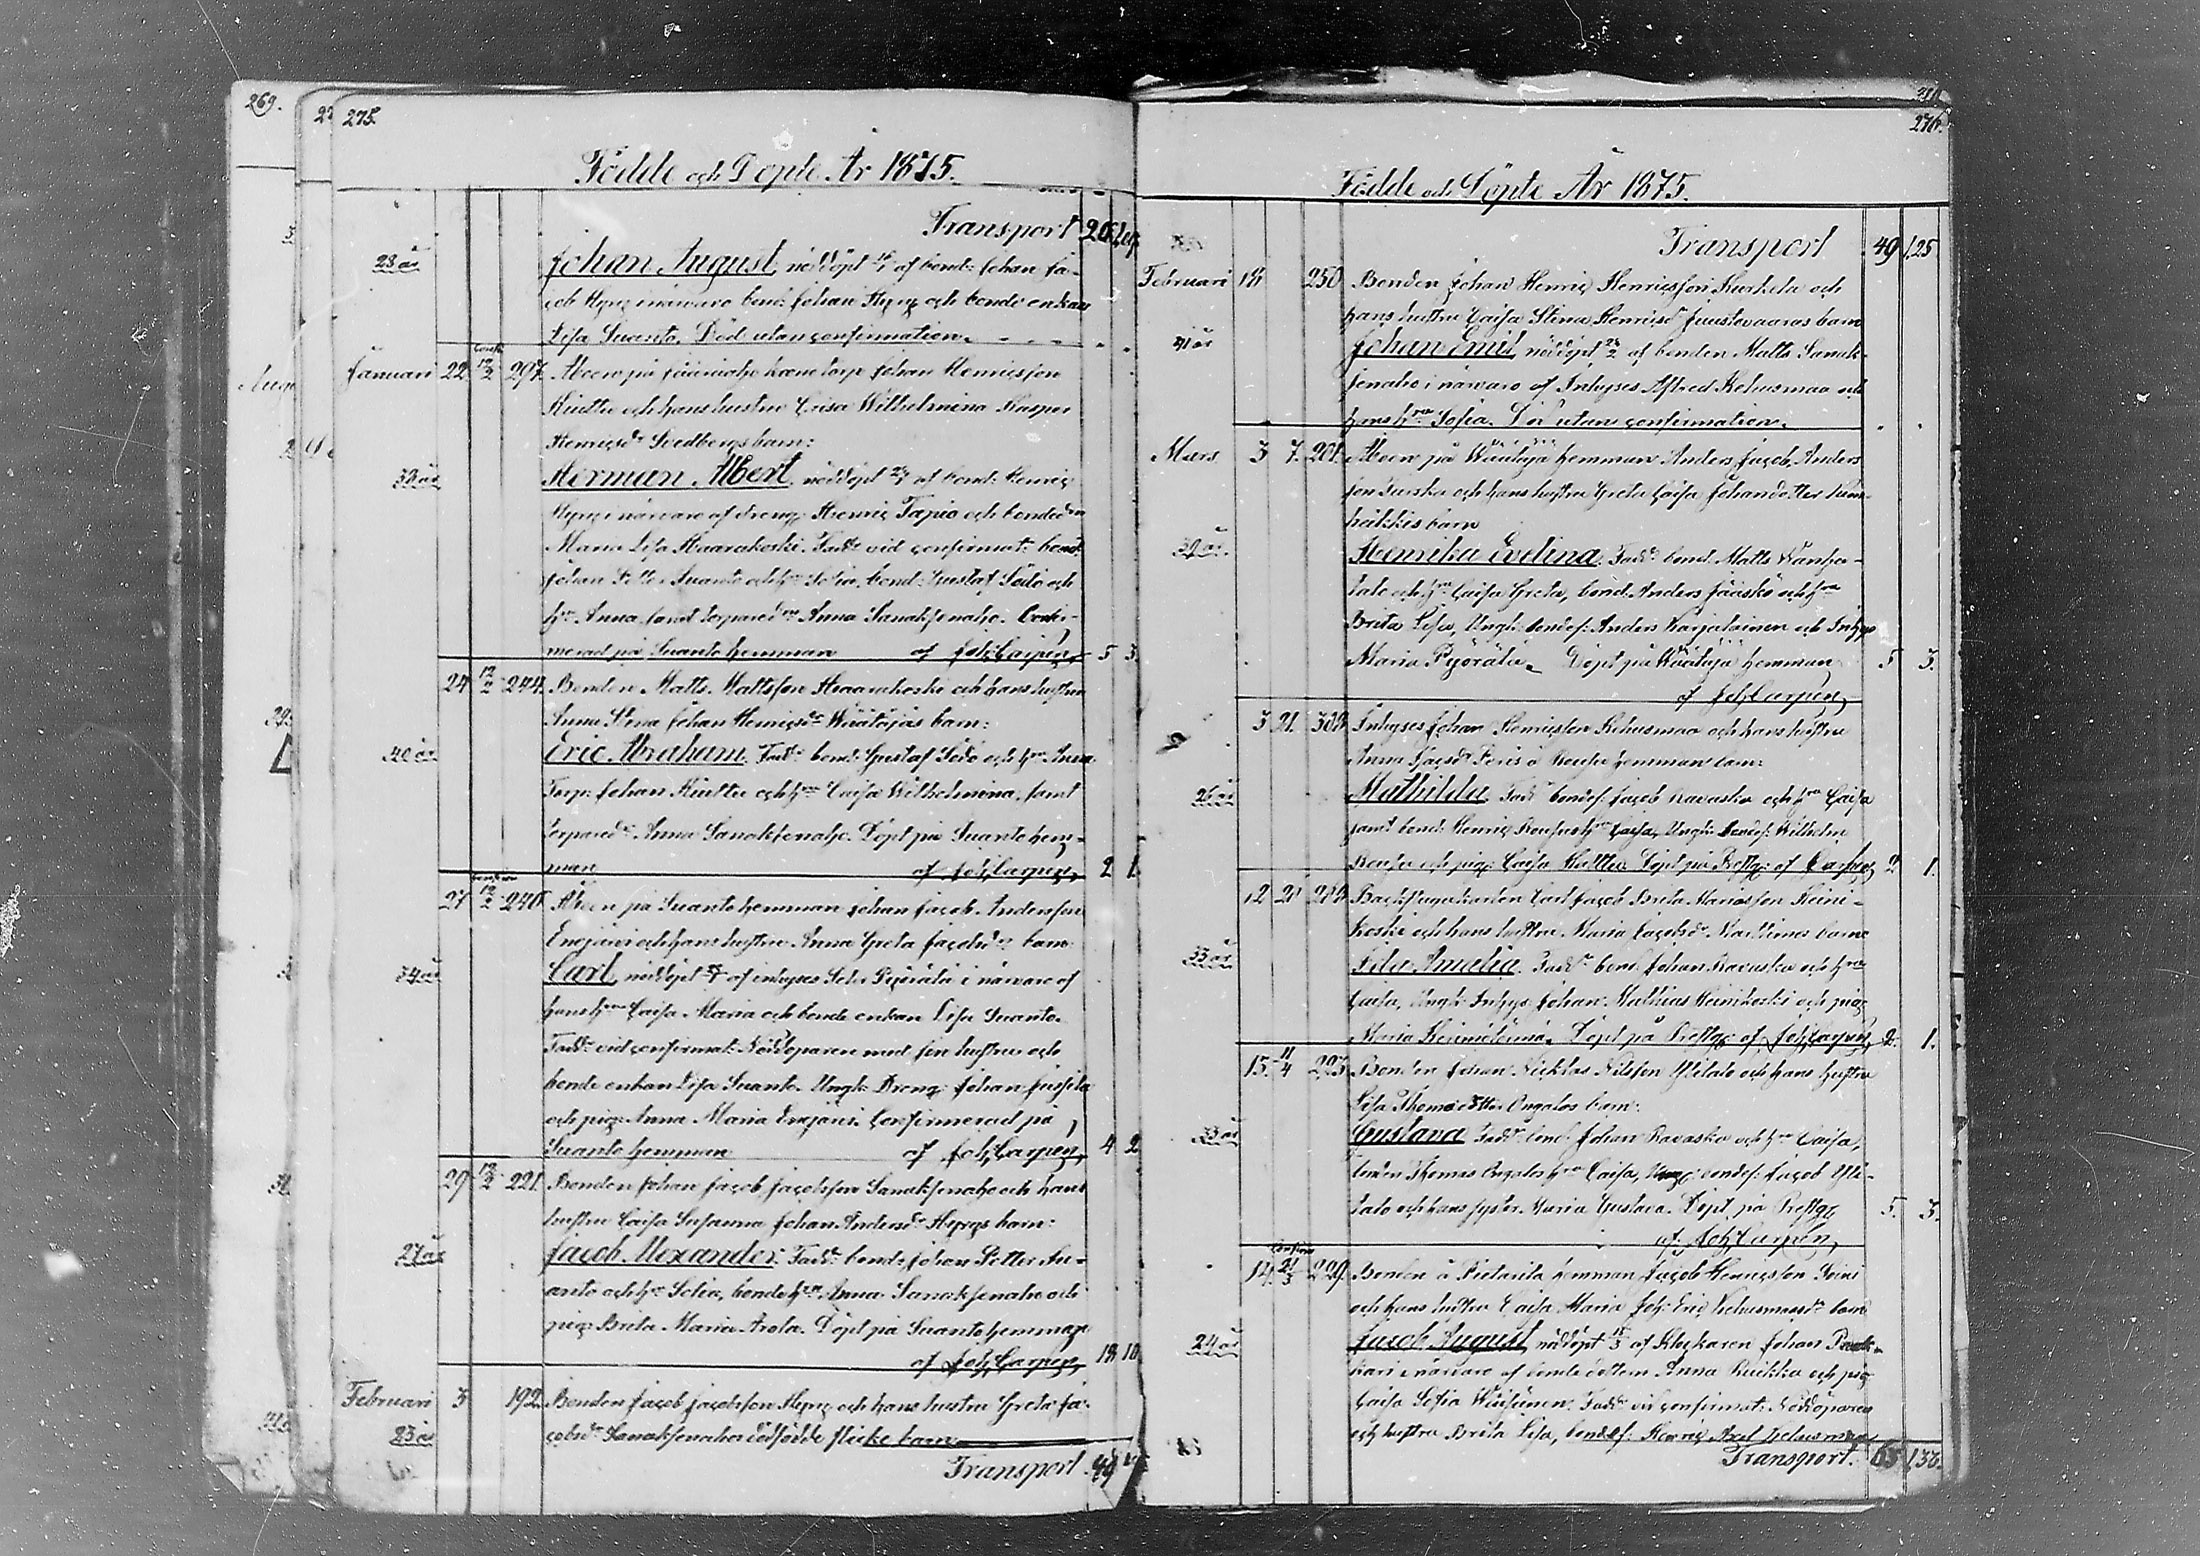 269.
275.
Födde och Döpte År 1875.
Transport
28 år
Johan August, nöddöpt af bond: Johan Ja-
cob Hyry i närwaro bond: Johan Hyry och bonde enkan
Lisa Suanto. Död utan confirmation.
Januari 22 12/2 297. Åboen på Jääniaho krono torp Johan Henricsson
Kinttu och hans hustru Caisa Wilhelmina Kasper
Henricsdr Svedbergs barn:
30 år
Herman Albert, nöddöpt af bond: Henric
Hyry i närwaro af dreng: Henric Tapio och bondedr
Maria Lisa Haarakoski. Faddr vid confirmat: bond:
Johan Petter Suanto och hru Sofia, bond: Gustaf Södö och
hru Anna samt torparedr Anna Sanaksenaho. Confir-
merad på Suanto hemman af Joh: Carpén, 5 3.
24 12/2 244. Bonden Matts Mattsson Haarakoski och hans hustru
Anna Stina Johan Henricsdr Wäätäjäs barn:
40 år
Eric Abraham. Faddr bond: Gustaf Södö och hru Anna
Torp: Johan Kinttu och hru Caisa Wilhelmina, samt
torparedr Anna Sanaksenaho. Döpt på Suanto hem-
man af Joh: Carpén, 2 1.
27 12/2 246. Åboen på Suanto hemman Johan Jacob Andersson
Enojärvi och hans hustru Anna Greta Jacobsdr barn
34 år
Carl, nöddöpt af inhyses Petter Pyörälä i närwaro af
hans hru Caisa Maria och bonde enkan Lisa Suanto.
Faddr vid confirmat: Nöddöparen med sin hustru och
bonde enkan Lisa Suanto. Ungk: Dreng: Johan Jussila
och pig: Anna Maria Enojärvi. Confirmerad på
Suanto hemman af Joh: Carpén, 4 2
29 12/2 221. Bonden Johan Jacob Jacobsson Sanaksenaho och hans
hustru Caisa Susanna Johan Andersdr Hyrys barn:
27 år
Jacob Alexander. Faddr bond: Johan Petter Su-
anto och hru Sofia, bonde hru Anna Sanaksenaho och
pig: Brita Maria Arola. Döpt på Suanto hemman
af Joh: Carpén, 18 10
Februari 3 192. Bonden Jacob Jacobsson Hyry och hans hustru Greta Ja-
23 år
cobsdr Sanaksenahos dödfödde flicke barn
Transport 49
276.
Födde och Döpte År 1875.
Transport 49 125
Februari 18 250 Bonden Johan Henric Henricsson Kurkela och
hans hustru Caisa Stina Henricsdr Juustovaaras barn
41 år
Johan Emil, nöddöpt af bonden Matts Sanak-
senaho i närwaro af Inhyses Alfred Kehusmaa och
hans hru Sofia. Död utan confirmation.
Mars 3 7. 201. Åboen på Wäätäjä hemman Anders Jacob Anders
son Turska och hans hustru Greta Caisa Johandotter
barn
39 år.
Henrika Evelina. Faddr bond: Matts Wanha-
talo och hru Caisa Greta, bond: Anders Jääskö och hru
Brita Lisa, Ungk: bondes: Anders Karjalainen och Inhys
Maria Pyörälä. Döpt på Wäätäjä hemman 5 3.
af Joh: Carpén,
3 21. 308. Inhyses Johan Henricsson Kehusmaa och hans hustru
Anna Isacsdr å Roufu hemman barn:
26 år
Mathilda. Faddr bondes: Jacob Ravaska och hru Caisa
samt bond: Henric Roufus hru Caisa, Ungk: bondes: Wilhelm
Roufu och pig: Caisa Kulttu. Döpt på Prestg: af Carpén, 2 1.
12 21 Backstugukarlen Carl Jacob Brita Mariasson Heini-
koski och hans hustru Maria Jacobsdr Martimos barn
33 år
Fila Amalia. Faddr bond: Johan Ravaska och hru
Caisa, Ungk: Inhys: Johan Mathias Heinikoski och pig:
Maria Keinäterinä. Döpt på Prestg: af Joh: Carpén, 2. 1.
15. 11/4 223. Bonden Johan Nicklas Nilsson Ylitalo och hans hustru
Lisa Thomasdotter Ongalos barn:
33 år
Gustava. Faddr bond: Johan Ravaska och hru Caisa,
bonden Thomas Ongalos hru Caisa, Ungk: bondes: Jacob Yli-
talo och hans syster Maria Gustava. Döpt på Prestg: 5. 3.
af Joh: Carpén,
14. 21/3 229. Bonden å Pietarila hemman Jacob Henricsson Soini
och hans hustru Caisa Maria Joh: Eric Kehusmaasdr barn
24 år
Jacob August, nöddöpt af Klockaren Johan
i närwaro af bonde dottern Anna Ruikka och pig:
Caisa Sofia Wäisänen. Faddr vid confirmat: Nöddöparen
och hustru Brita Lisa, bondes: Henric Axel Kehusmaa
Transport. 65 136.